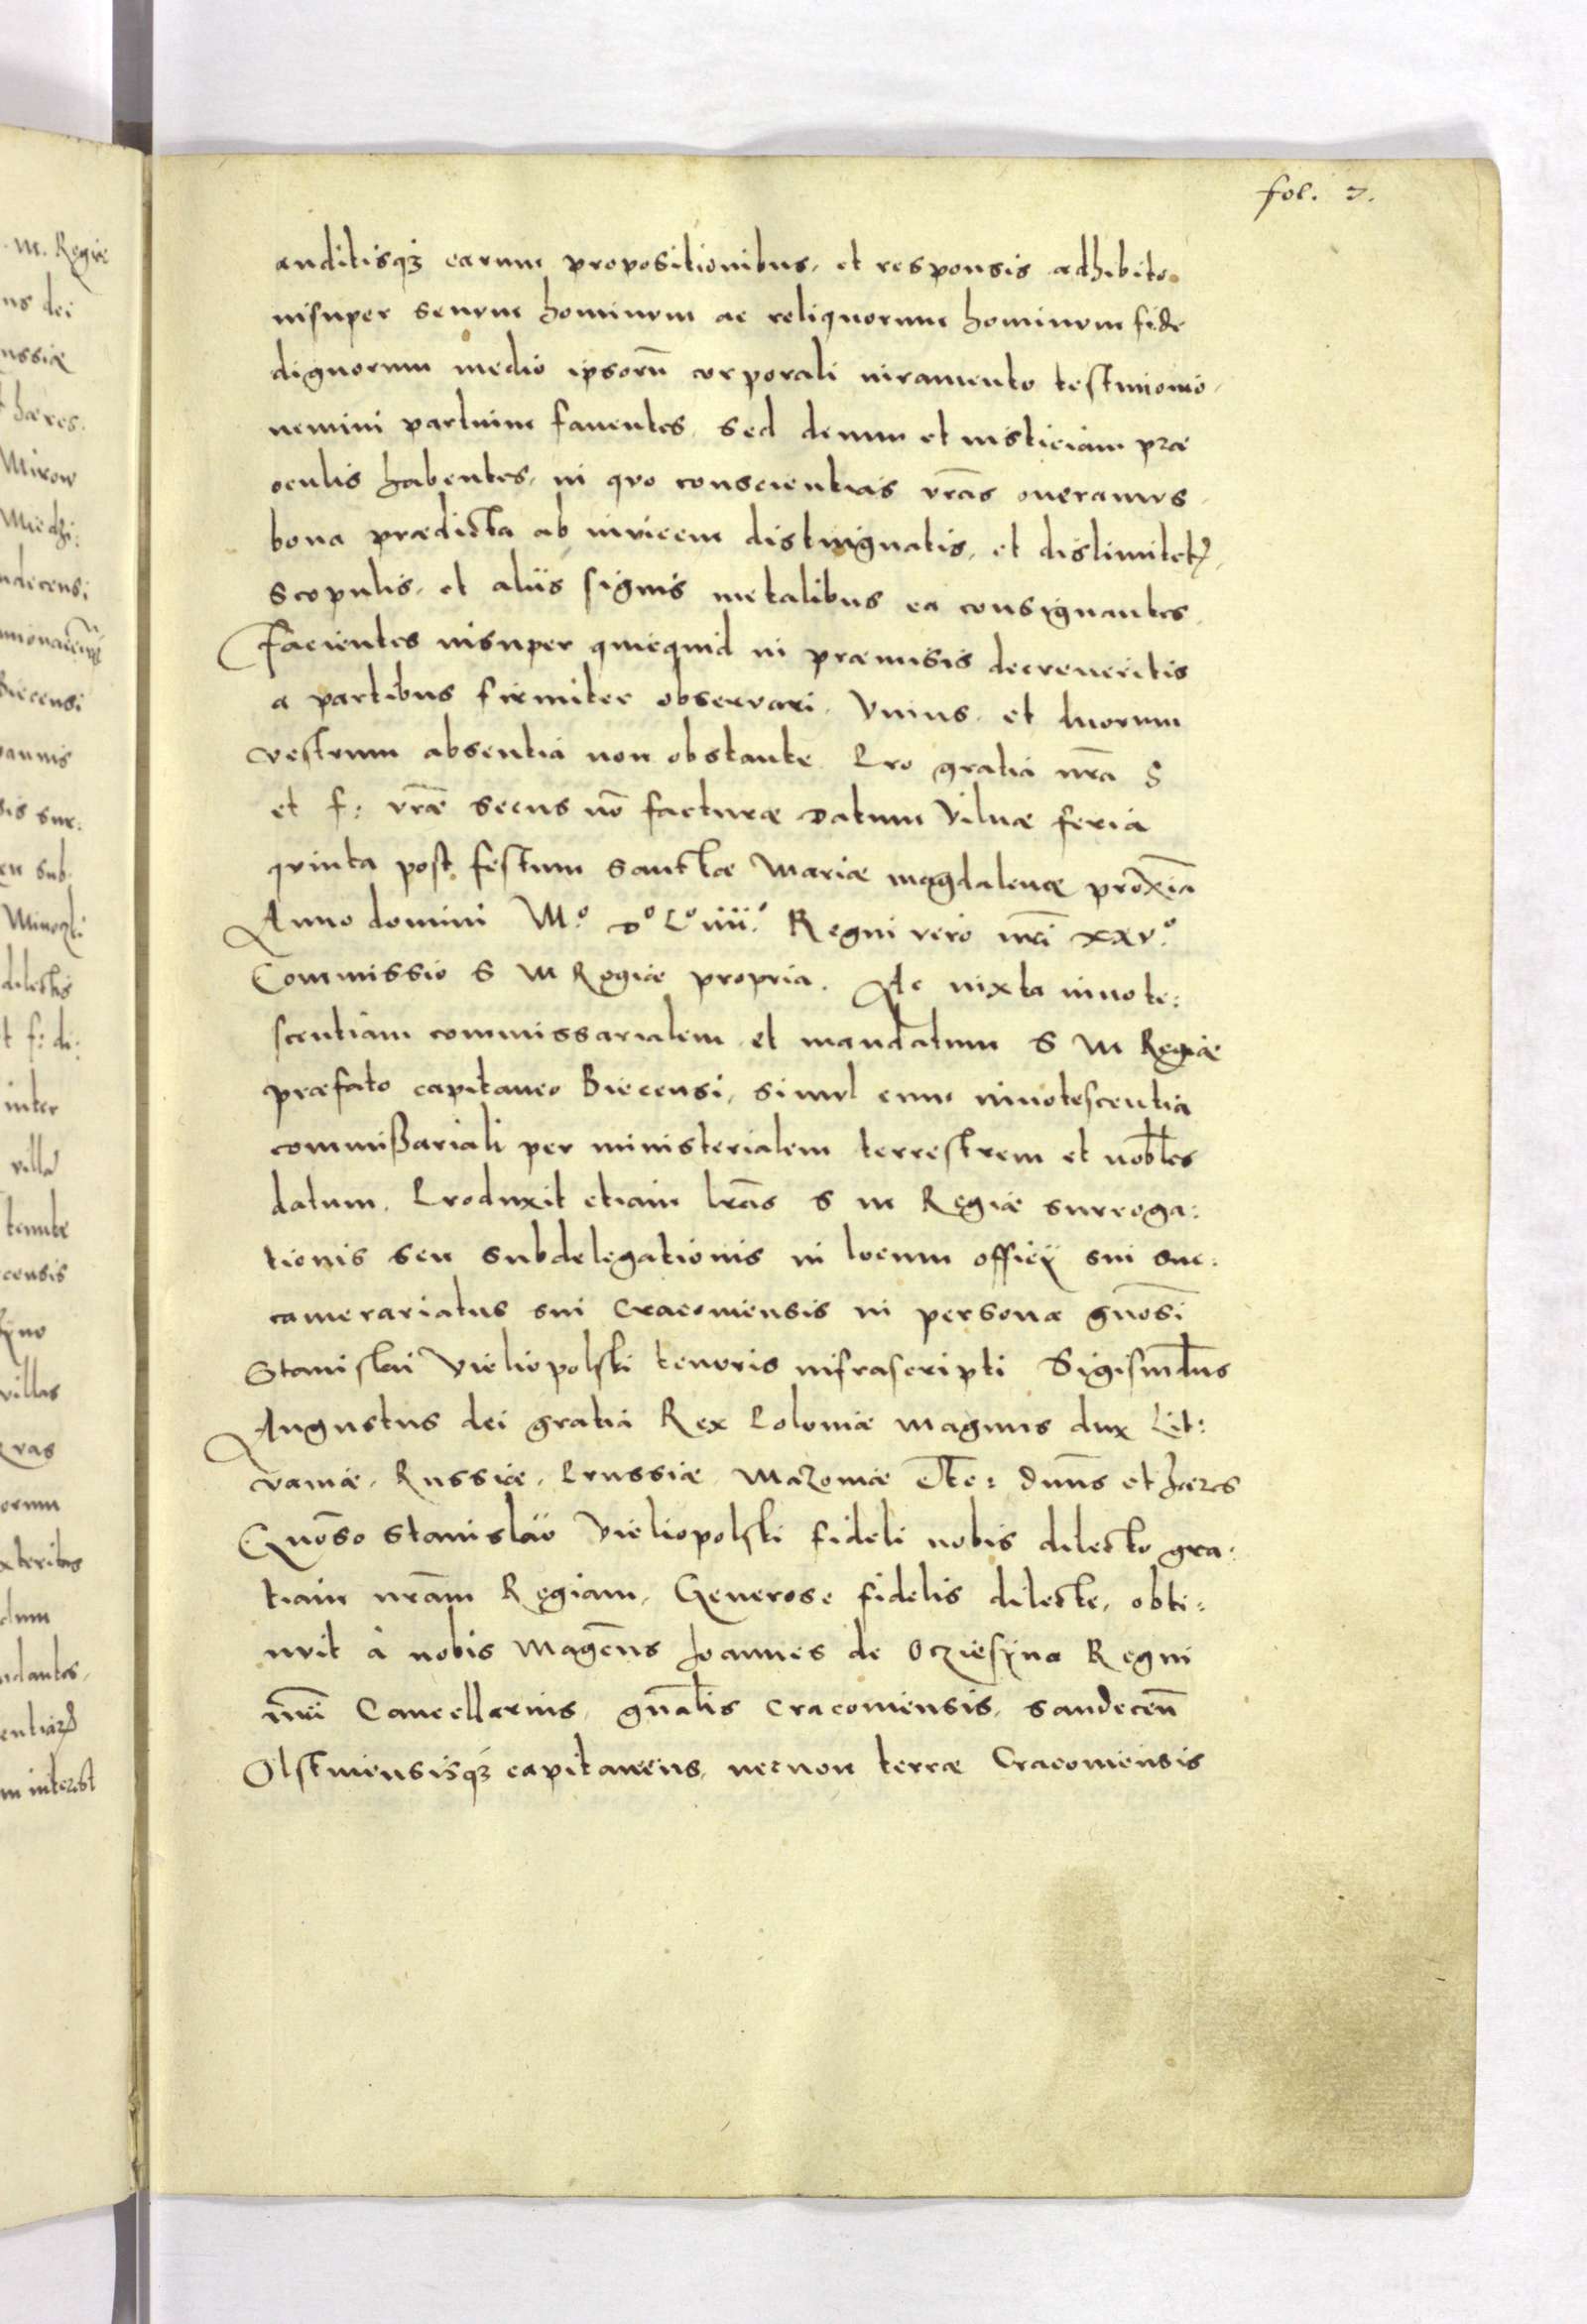 fol. 2.
auditisq₃ earum propositionibus, et responsis adhibito
insuper senum hominum ac reliquorum hominum fide
dignorum medio ipsorū corporali iuramento testimonio,
nemini partium fauentes, sed deum et iusticiam præ
oculis habentes, in quo conscientias vrās oneramus,
bona prædicta ab inuicem distinguatis, et dislimitetis,
scopulis, et aliis signis metalibus ea consignantes,
Facientes insuper quicquid in præmisis decreueritis
a partibus firmiter obseruari, Vnius, et duorum
vestrum absentia non obstante Pro gratia nrā S
et f: vrāe secus nō facturæ Datum Vilnæ feria
quinta post festum sanctæ Mariæ magdalenæ proxīa
Anno domini M° D° L° iiii° Regni vero nrī xxv°
Commissio S M Regiæ propria. Ac iuxta innote:
scentiam commissarialem et mandatum S M Regiæ
præfato capitaneo Biecensi, simul cum innotescentia
commißariali per ministerialem terrestrem et nobłes
datum. Produxit etiam lrās S M Regiæ surroga:
tionis seu subdelegationis in locum officij sui suc:
camerariatus sui Cracouiensis in persona gn̄osi
Stanislai Vieliopolski tenoris infrascripti Sigismdus
Augustus dei gratia Rex Poloniæ magnus dux Lit:
vaniæ, Russiæ, Prussiæ Mazouiæ etc: dnūs et hæres
Gnōso Stanislao Vieliopolski fideli nobis dilecto gra:
tiam nrām Regiam, Generose fidelis dilecte, obti:
nuit à nobis Magcūs Joannes de Ocziesÿna Regni
nrī Cancellarius, gnālis Cracouiensis, sandeceñ
Olstinensisq₃ capitaneus, necnon terræ Cracouiensis